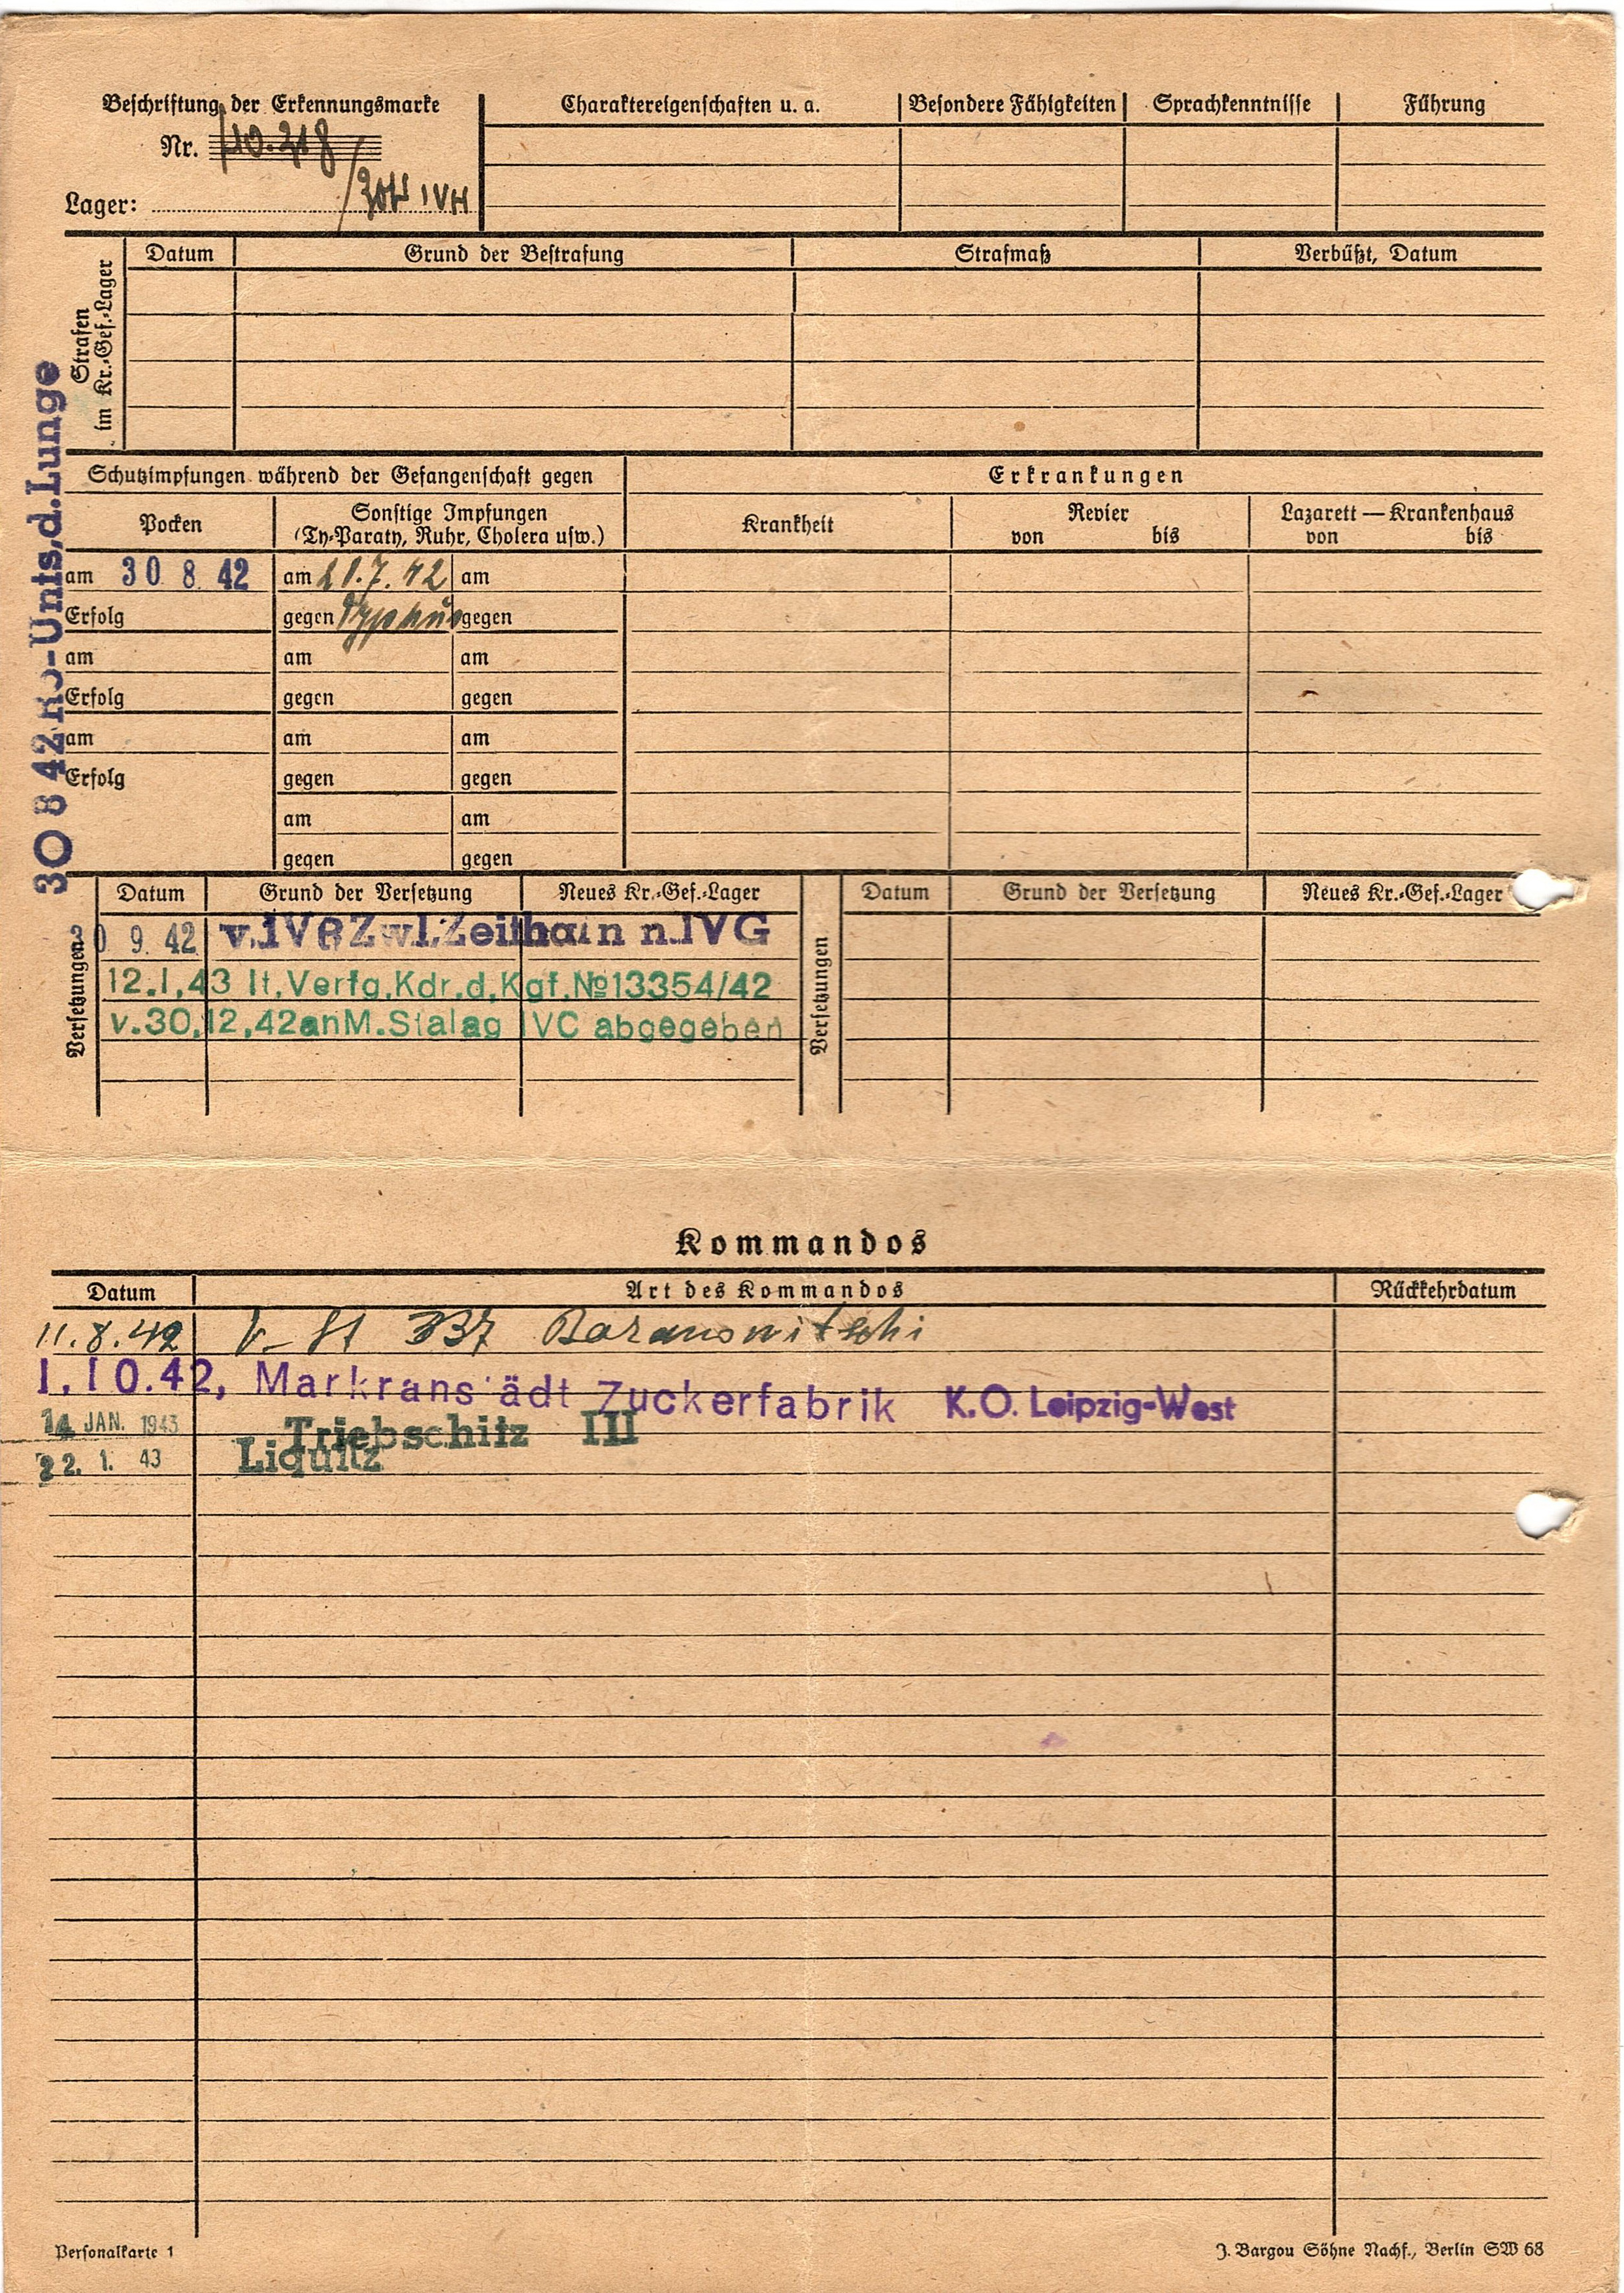 Beschriftung der Erkennungsmarke
Nr. 110.218
Lager: IVH
Charaktereigenschaften u. a. Besondere Fähigkeiten Sprachkenntnisse Führung
Strafen im Kr.-Gef.-Lager
Datum Grund der Bestrafung Strafmaß Verbüßt, Datum
30 8 42 Rö-Unts,d.Lunge
Schutzimpfungen während der Gefangenschaft gegen Erkrankungen
Pocken Sonstige Impfungen (Ty-Paraty, Ruhr, Cholera usw.) Krankheit Revier von bis Lazarett — Krankenhaus von bis
am 30 8. 42 am 21.7.42 am
Erfolg gegen Typhus gegen
am am am
Erfolg gegen gegen
am am am
Erfolg gegen gegen
am am
gegen gegen
Versetzungen Datum Grund der Versetzung Neues Kr.-Gef.-Lager Versetzungen Datum Grund der Versetzung Neues Kr.-Gef.-Lager
0 9. 42 v.IVB Zwl.Zeithain n.IVG
12.1.43 lt.Verfg.Kdr.d.Kgf.№13354/42
v.30.12.42 an M.Stalag IVC abgegeben
Kommandos
Datum Art des Kommandos Rückkehrdatum
11.8.42 V. St 337 Baranowitschi
1.10.42, Markranstädt Zuckerfabrik K.O. Leipzig-West
14 JAN. 1943 Triebschitz III
22. 1. 43 Liquitz
Personalkarte 1 J. Bargou Söhne Nachf., Berlin SW 68